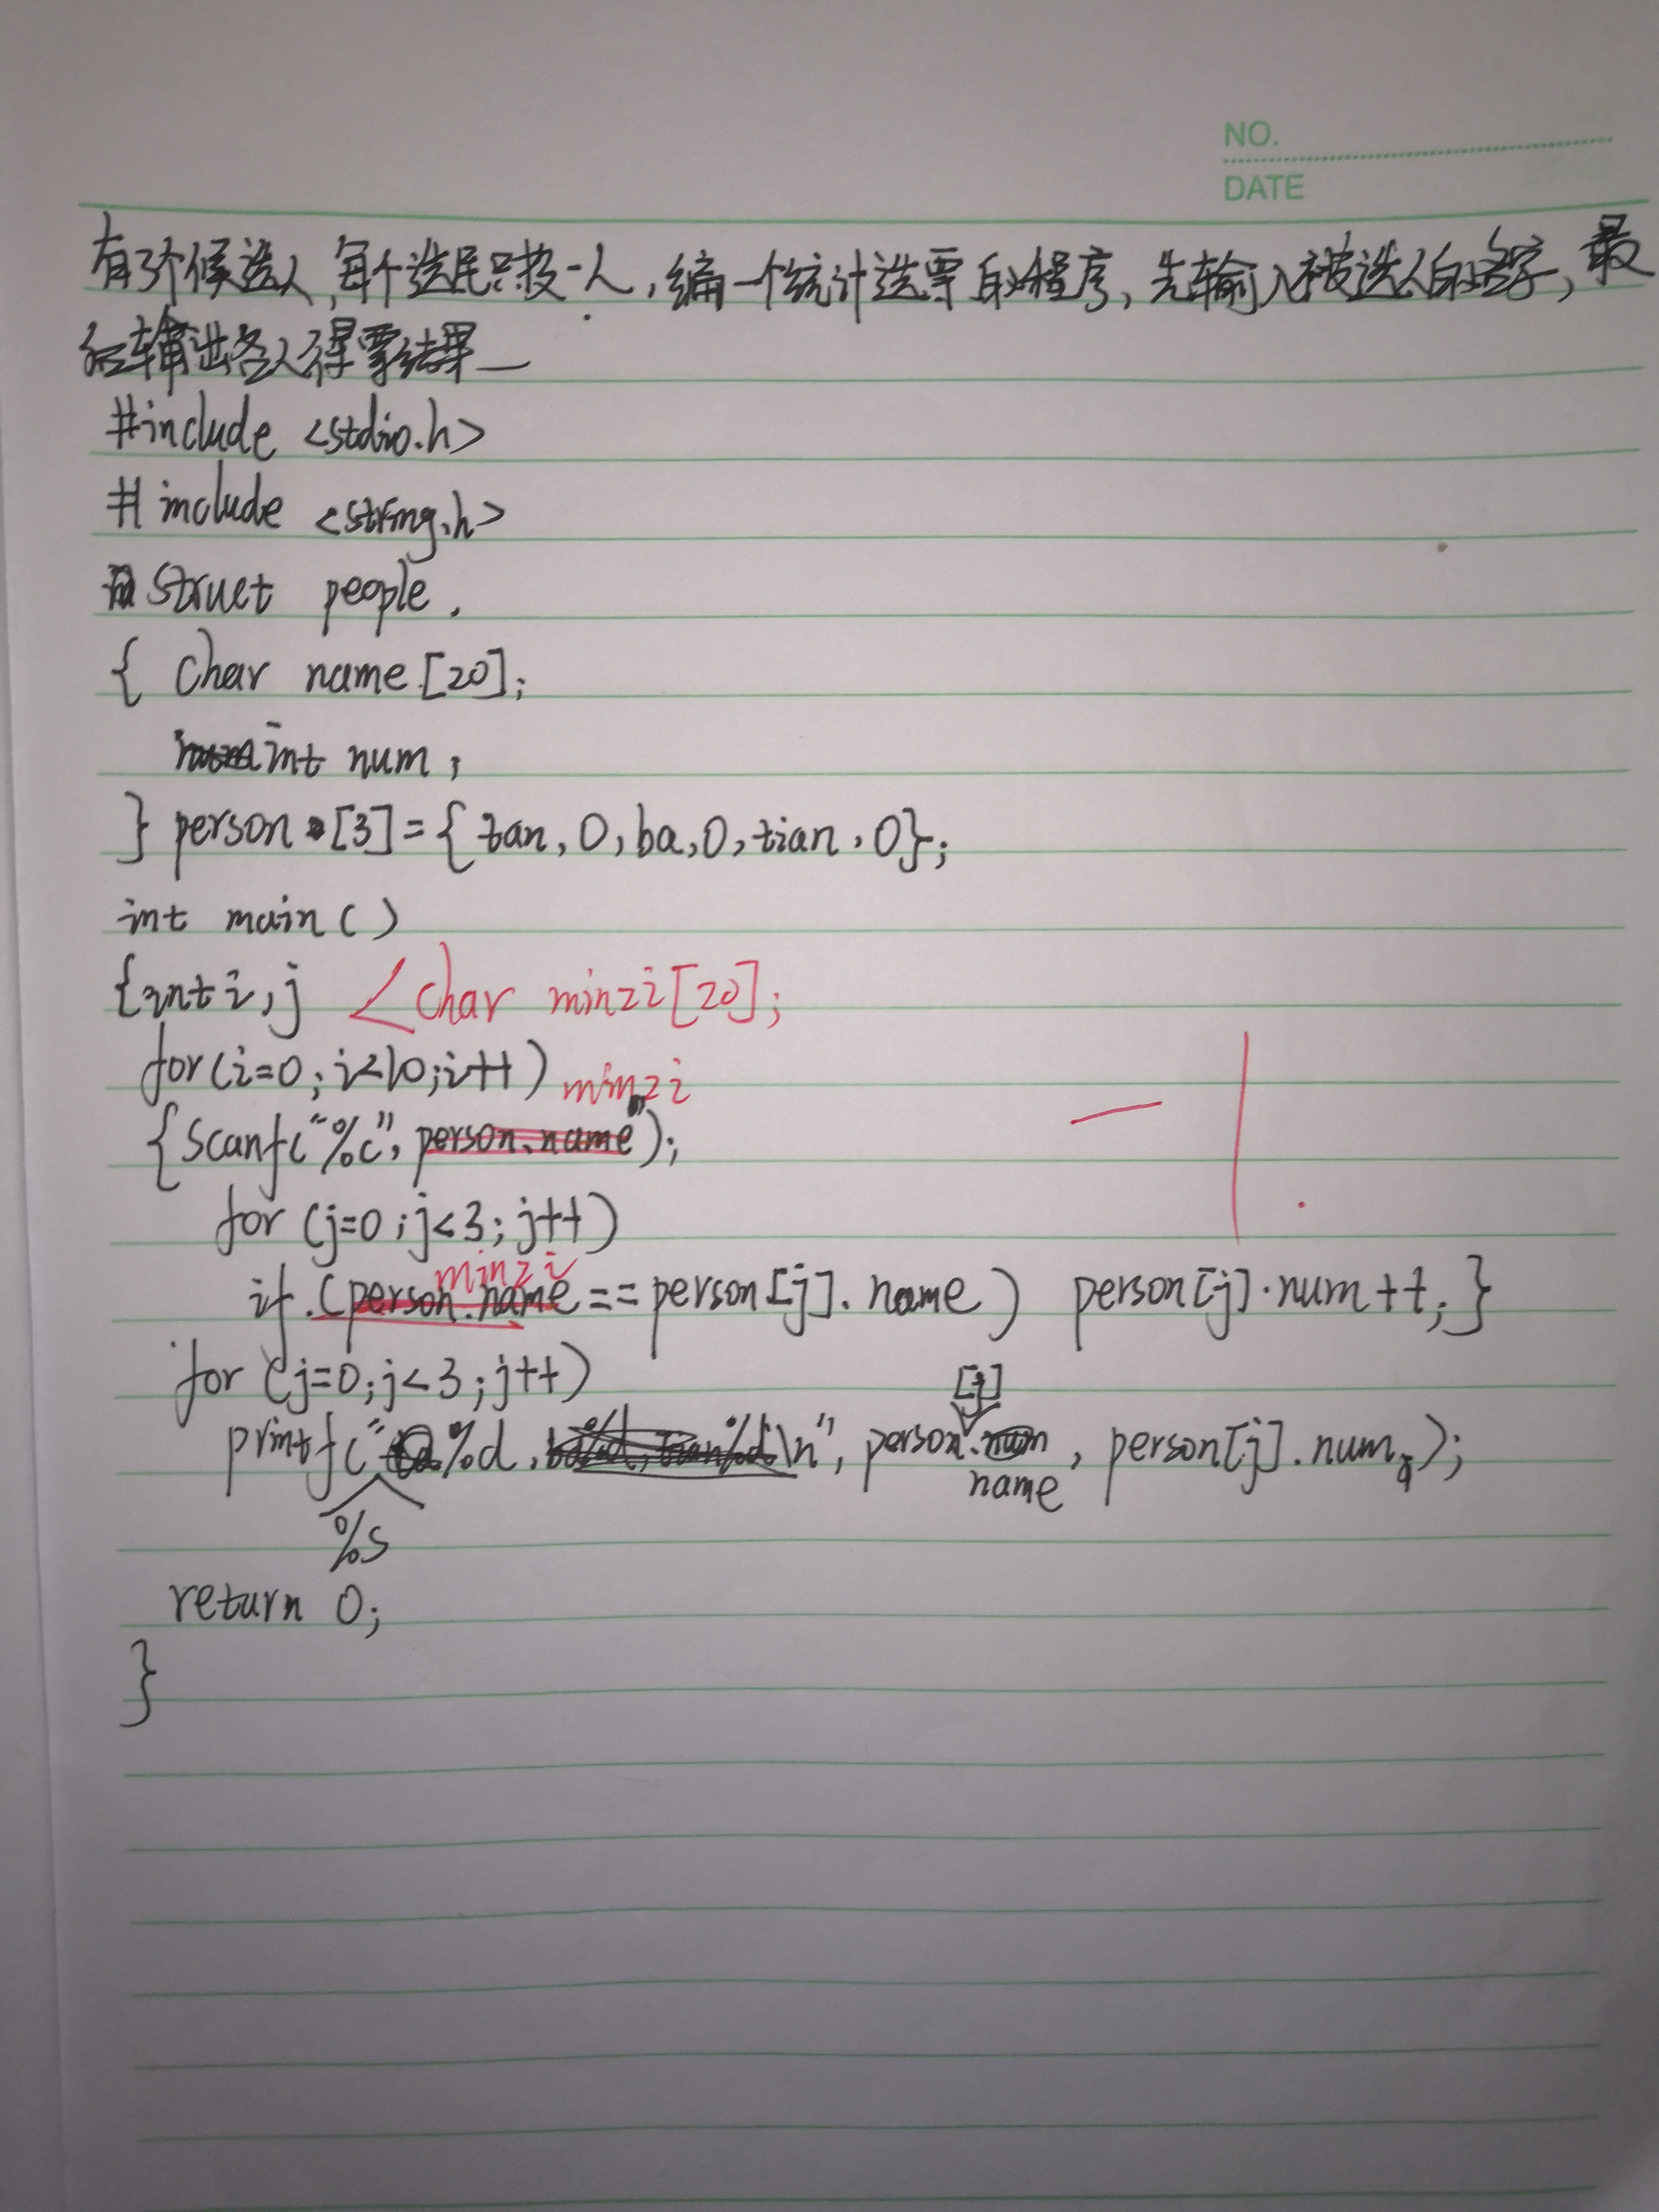 NO.
DATE
有3个候选人,每个选民只投一人,编一个统计选票的程序,先输入被选人的名字,最
后输出各人得票结果
#include <stdio.h>
#include <string.h>
struct people
{ char name[20];
int num;
} person[3]={tan,0,ba,0,tian,0};
int main()
{int i,j <char minzi[20];
for(i=0;i<10;i++) minzi
{scanf("%c", person.name);
for (j=0;j<3;j++)
minzi
if (person.name==person[j].name) person[j].num++;}
for (j=0;j<3;j++)
[j]
printf("%d, \n", person. , person[j].num);
name
%s
return 0;
}